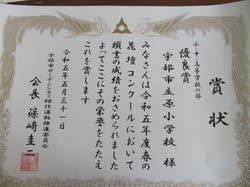 賞状
小・中・高等学校の部
優良賞
宇部市立原小学校 様
みなさんは令和五年度春の
花壇コンクールにおいて
頭書の成績をおさめられました
よってここにその栄誉をたたえ
これを賞します
令和五年五月三十一日
宇部市ガーデンシティ緑化運動推進委員会
会長 篠﨑圭二